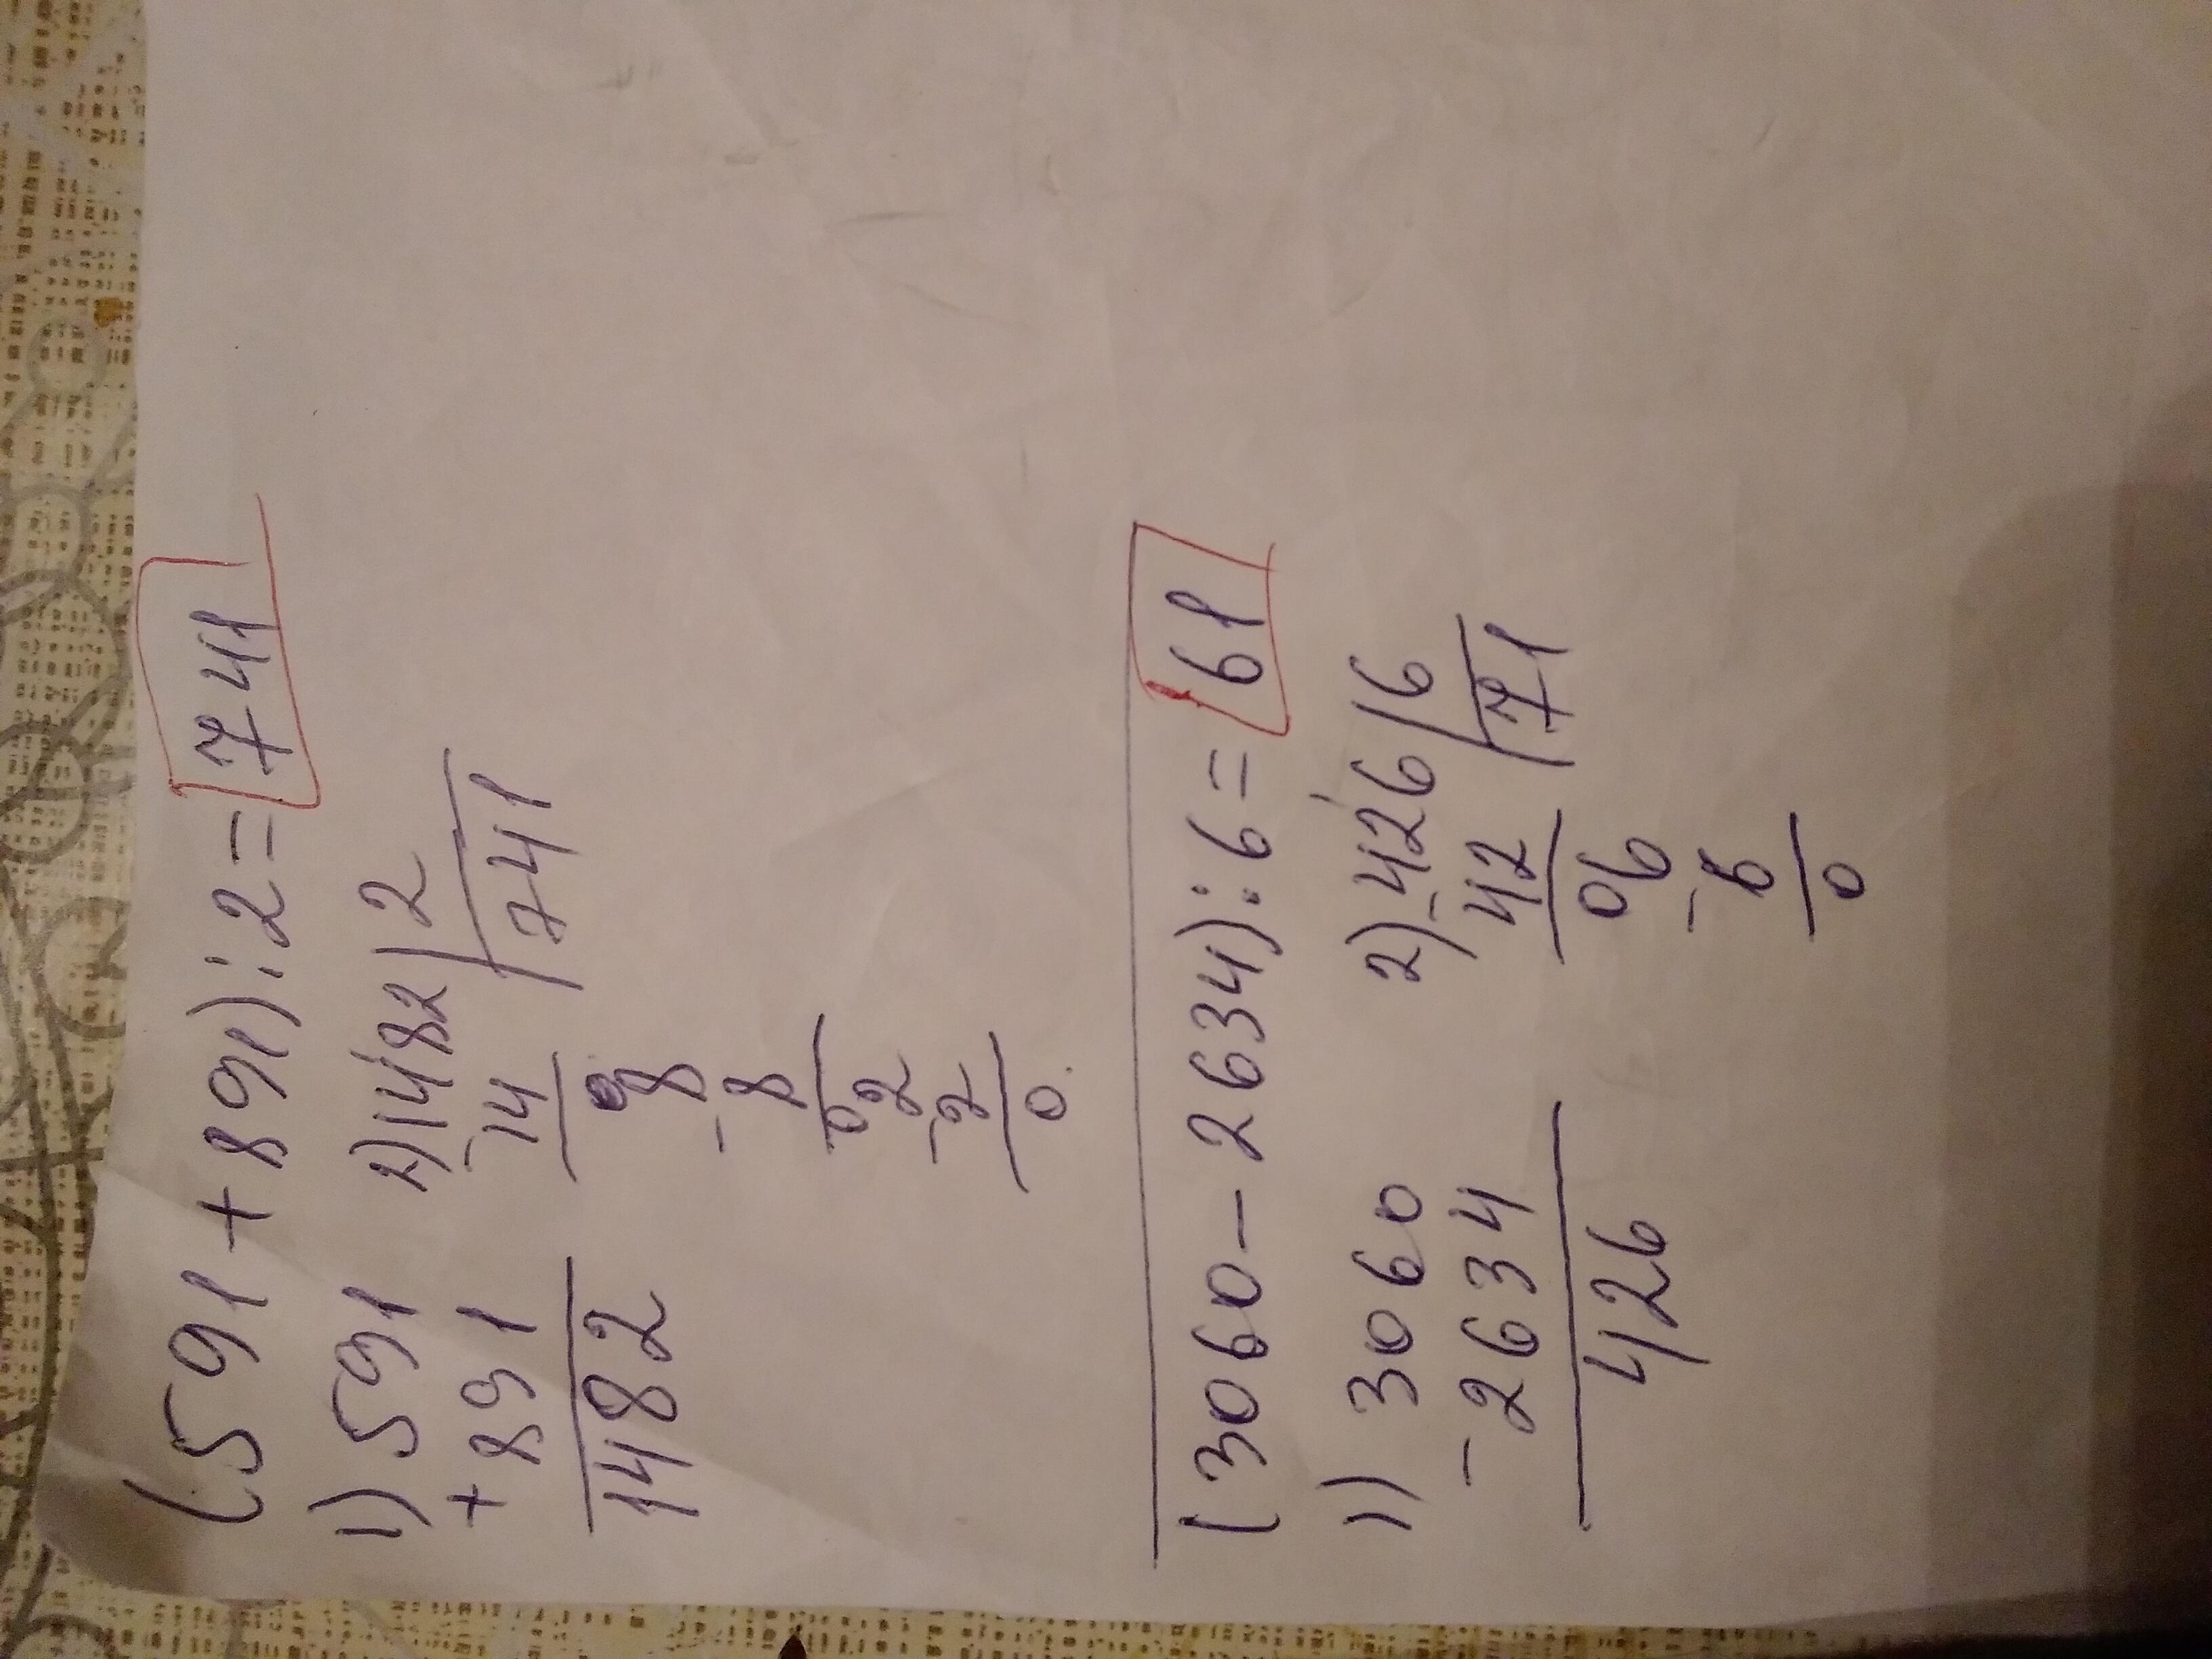 (591+891):2=741
1) 591 2) 1482 | 2
+ 891 - 14 741
1482 08
- 8
02
- 2
0
(3060-2634):6=61
1) 3060 2) - 426 | 6
- 2634 42 71
426 06
- 6
0